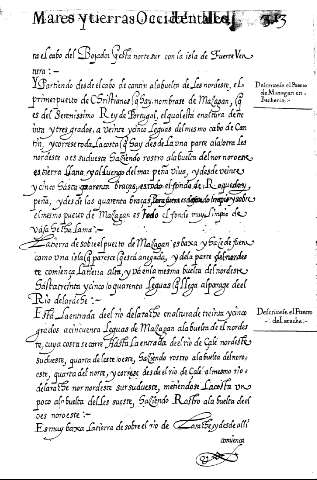 Mares y tierras Occidentales, 313
ra el cabo del Boyador q̃ esta norte sur con la isla de Fuerte Ven
tura :-
Y Partiendo desde el cabo de cantin ala buelta de Les nordeste, el
primer puerto de Christianos q̃ hay, nombrase de Mazagan, q̃
es del Serenissimo Rey de Portugal, el qual esta en altura de tre
inta y tres grados, a veinte y cinco leguas del mesmo cabo de Can
tin, y corresse toda La costa q̃ hay desde La una parte ala otra les
nordeste oes sudueste haziendo rostro ala buelta del nor nordeste
es tierra llana y al luengo del mar peña vius, y desde veinte
y cinco hasta quarenta braças, es todo el fondo de
peña, y desde las quarenta braças para fuera es todo limpio y sobre
el mesmo puerto de Mazagan es todo el fondo muy limpio de
vasa de the lama :-
La tierra de sobre el puerto de Mazagan es baxa y haze de fuera
como una isla q̃ parece q̃ esta anegada, y de la parte del nordes
te comiença La tierra alta, y va en la mesma buelta del nordeste
hasta treinta y cinco o quarenta leguas q̃ llega al parage de el
Rio de larache :-
Esta La entrada del rio de larache en altura de treinta y cinco
grados a cincuenta Leguas de Mazagan ala buelta de el nordes
te, cuya costa se corre hasta La entrada del rio de Çale nordeste
sudueste, quarta de leste oeste, haziendo rostro ala buelta del nores
este, quarta del norte, y corresse desde el rio de Çale al mesmo rio
de larache nor nordeste sur sudueste, metiendose La costa un
poco ala buelta del Les sueste, haziendo Rostro ala buelta de el
oes noroeste :-
Es muy baxa La tierra de sobre el rio de Larache, y desde alli
comiença
Descrivese el Puerto
de Mazagan en
Berberia.
Descrivese el Puerto
de Larache.